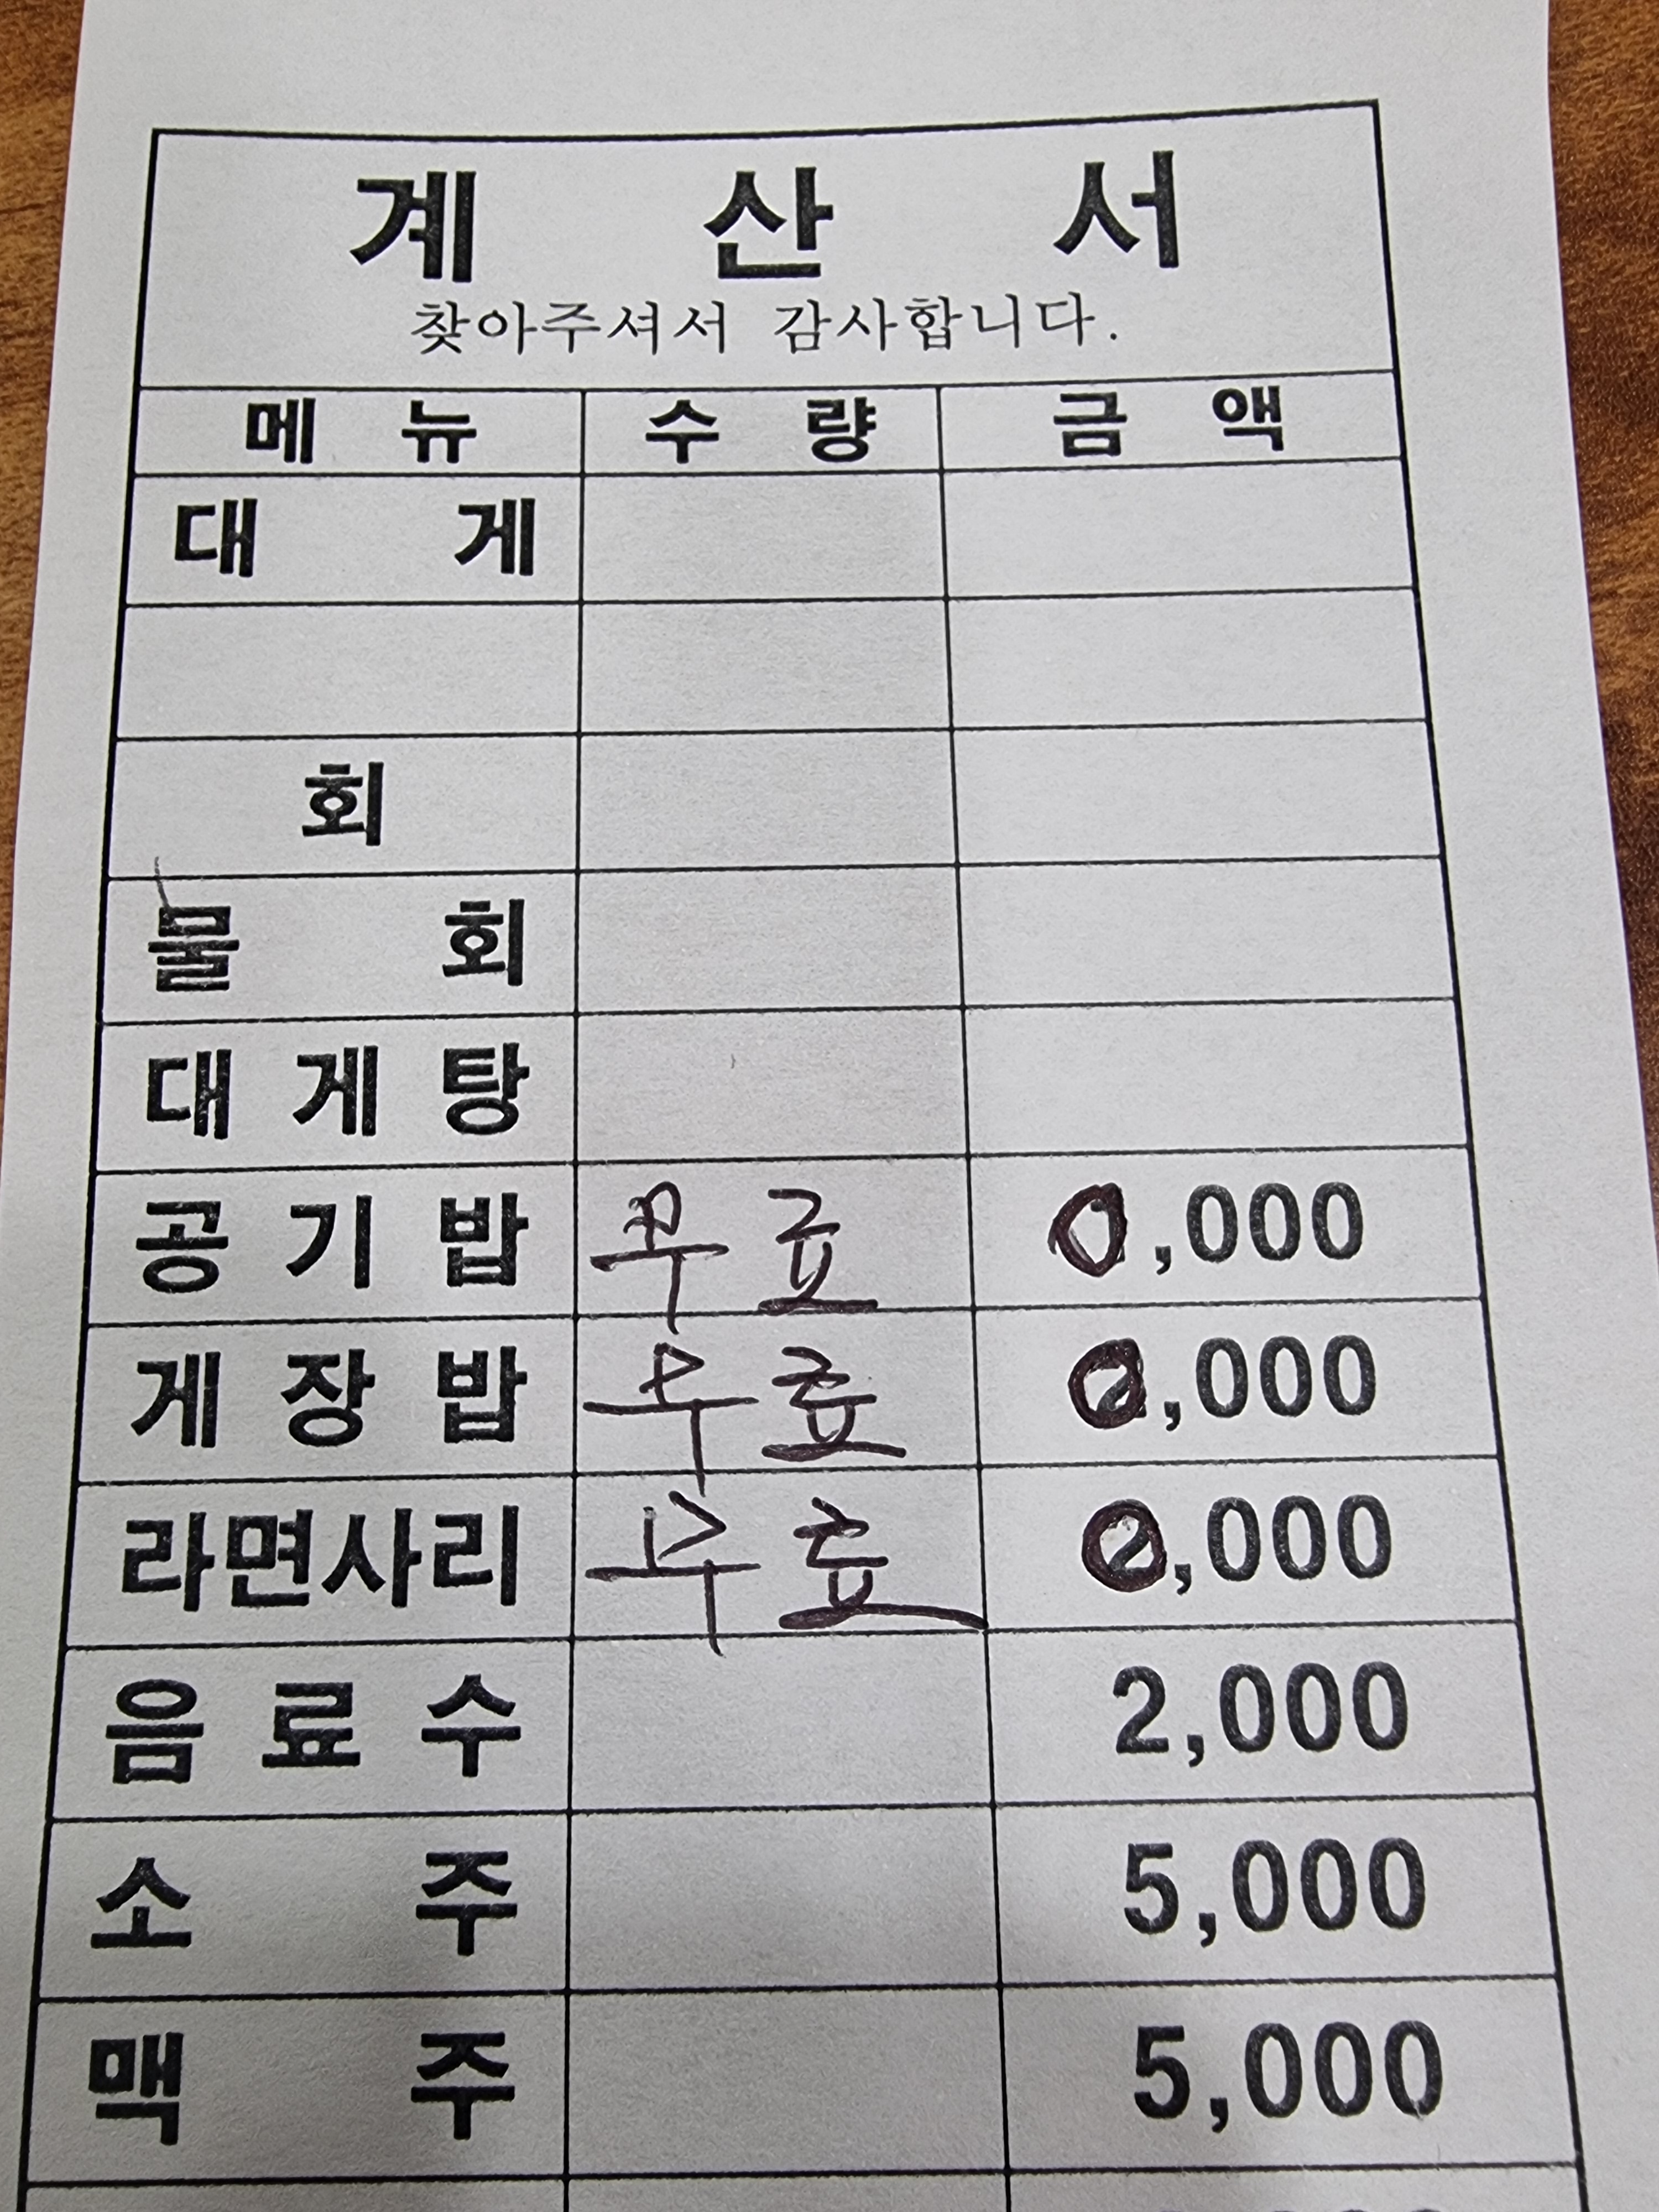 계 산 서
찾아주셔서 감사합니다.
메 뉴 수 량 금 액
대 게
회
물 회
대 게 탕
공 기 밥 무료 0,000
게 장 밥 무료 0,000
라면사리 무료 0,000
음 료 수 2,000
소 주 5,000
맥 주 5,000